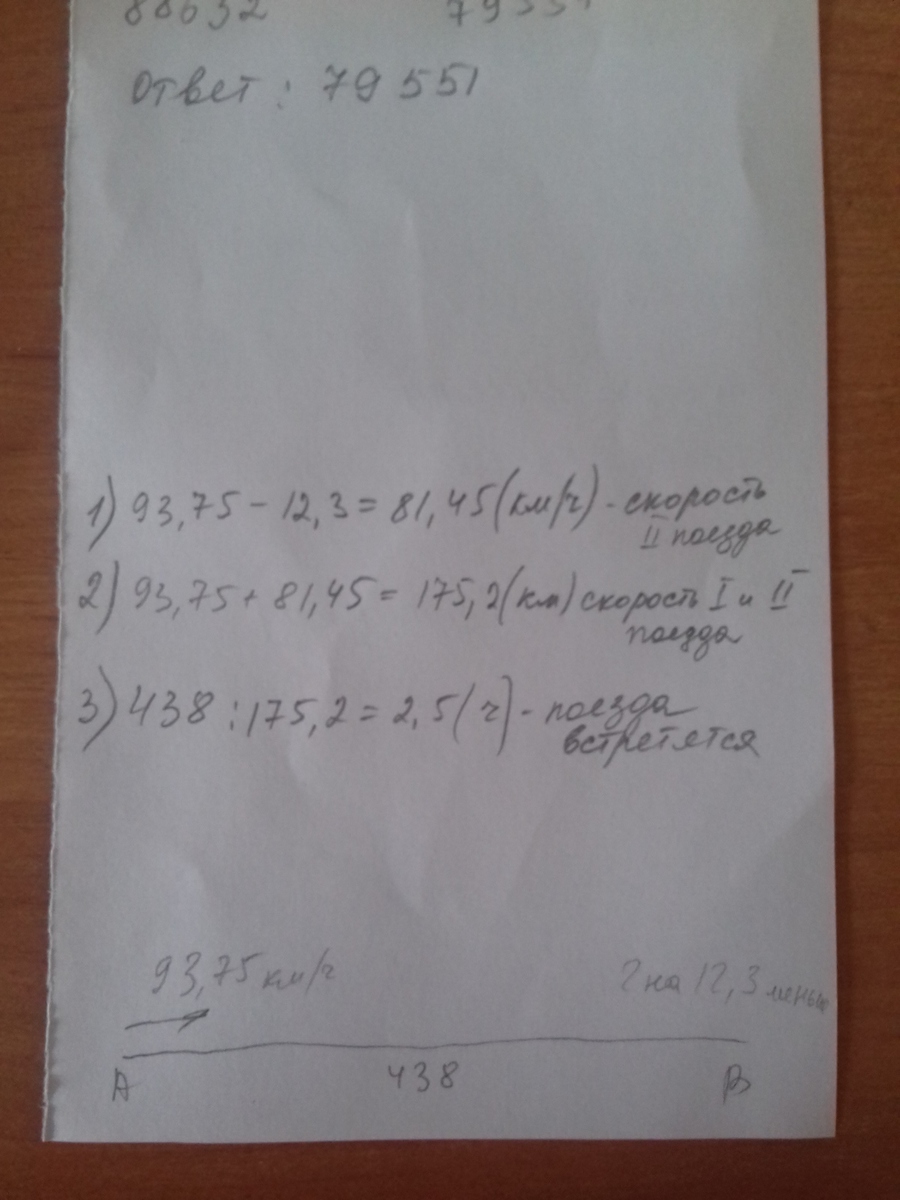 88632 7955
Ответ: 79551
1) 93,75 - 12,3 = 81,45 (км/ч) - скорость
II поезда
2) 93,75 + 81,45 = 175,2 (км) скорость I и II
поезда
3) 438 : 175,2 = 2,5 (ч) - поезда
встретятся
93,75 км/ч ? на 12,3 меньш
А 438 В